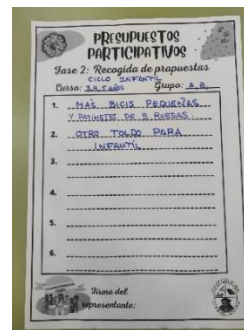 PRESUPUESTOS
PARTICIPATIVOS
Fase 2: Recogida de propuestas
CICLO INFANTIL
Curso: 3,4,5 AÑOS Grupo: A, B
1. MÁS BICIS PEQUEÑAS
Y PATINETES DE 3 RUEDAS
2. OTRO TOLDO PARA
INFANTIL
3.
4.
5.
6.
Firma del
representante: